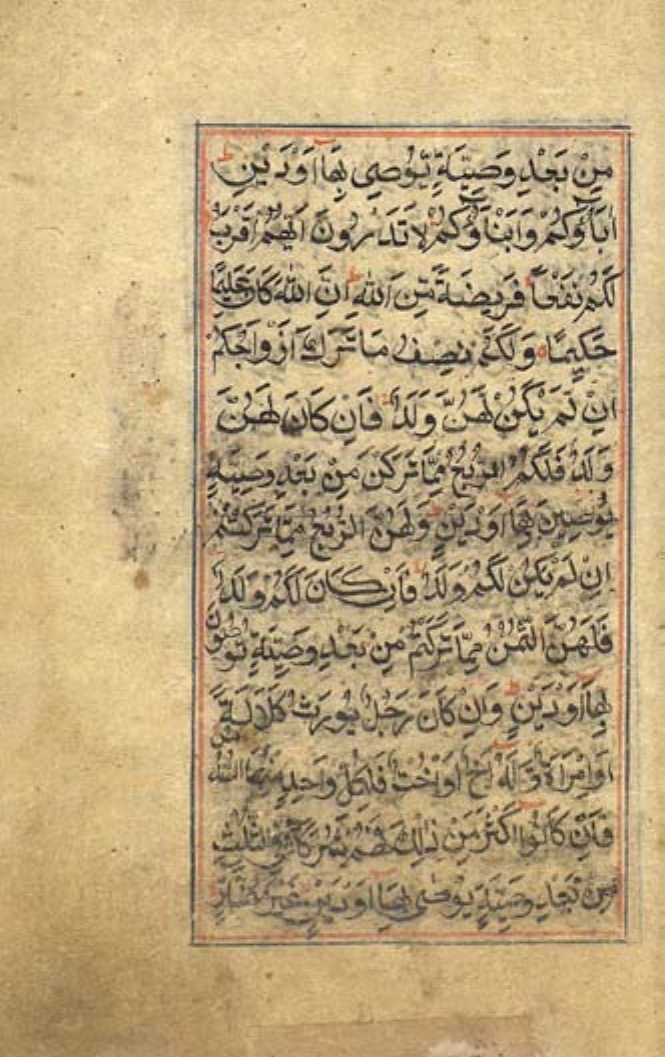 مِنْ بَعْدِ وَصِيَّةٍ تُوْصِى بِهَا اَوْ دَيْنٍ ط
اٰبَاؤُكُمْ وَاَبْنَاؤُكُمْ لَا تَدْرُونَ اَيُّهُمْ اَقْرَبُ
لَكُمْ نَفْعًا فَرِيضَةً مِّنَ اللهِ ط اِنَّ اللهَ كَانَ عَلِيمًا
حَكِيمًا ه وَلَكُمْ نِصْفُ مَا تَرَكَ اَزْوَاجُكُمْ
اِنْ لَمْ يَكُنْ لَهُنَّ وَلَدٌ فَاِنْ كَانَ لَهُنَّ
وَلَدٌ فَلَكُمُ الرُّبُعُ مِمَّا تَرَكْنَ مِنْ بَعْدِ وَصِيَّةٍ
يُوْصِينَ بِهَا اَوْ دَيْنٍ وَلَهُنَّ الرُّبُعُ مِمَّا تَرَكْتُمْ
اِنْ لَمْ يَكُنْ لَكُمْ وَلَدٌ فَاِنْ كَانَ لَكُمْ وَلَدٌ
فَلَهُنَّ الثُّمُنُ مِمَّا تَرَكْتُمْ مِنْ بَعْدِ وَصِيَّةٍ تُوصُونَ
بِهَا اَوْ دَيْنٍ ط وَاِنْ كَانَ رَجُلٌ يُورَثُ كَلَالَةً
اَوِ امْرَاَةٌ وَّلَهُ اَخٌ اَوْ اُخْتٌ فَلِكُلِّ وَاحِدٍ مِنْهُمَا السُّدُسُ
فَاِنْ كَانُوا اَكْثَرَ مِنْ ذٰلِكَ فَهُمْ شُرَكَاءُ فِي الثُّلُثِ
مِنْ بَعْدِ وَصِيَّةٍ يُوصٰى بِهَا اَوْ دَيْنٍ غَيْرَ مُضَارٍّ